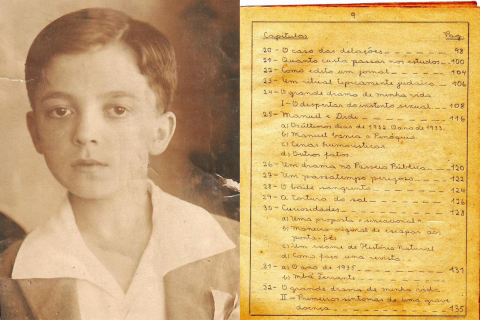 9
Capítulos Pag.
20 - O caso das delações 98
21 - Quanto custa passar nos estudos 100
22 - Como edito um jornal 104
23 - Um ritual tipicamente judaico 106
24 - O grande drama de minha vida
I - O despertar do instinto sexual 108
25 - Manuel e Didi 116
a) Os últimos dias de 1932. O ano de 1933.
b) Manuel banca o Pinóquio
c) Cenas humorísticas
d) Outros fatos
26 - Um drama no Passeio Público 120
27 - Um passatempo perigoso 122
28 - O baile sangrento 124
29 - A tortura do sal 126
30 - Curiosidades 128
a) Uma proposta "sensacional"
b) Maneira original de escapar aos
ponta-pés
c) Um exame de História Natural
d) Como fazer uma revista
31 - a) O ano de 1935 131
b)
32 - O grande drama de minha vida
II - Primeiros sintomas de uma grave
doença 135